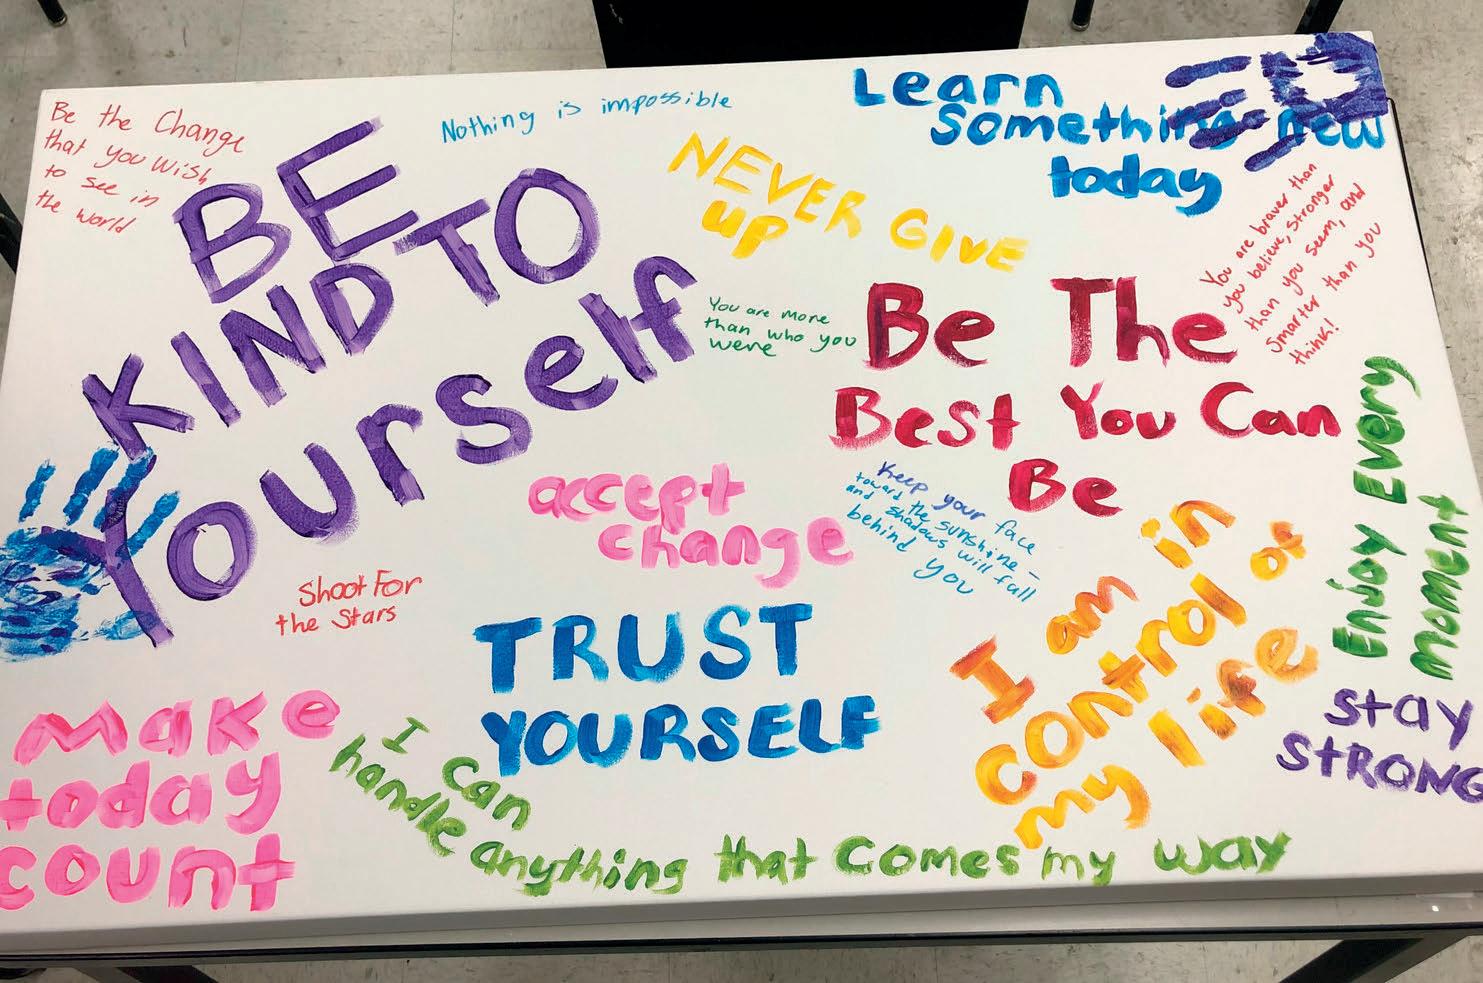 Be the Change
that you Wish
to see in
the world
BE
KIND TO
Yourself
Nothing is impossible
NEVER GIVE
up
Learn
Something new
today
You are braver than
you believe, stronger
than you seem, and
Smarter than you
think!
You are more
than who you
were
Be The
Best You Can
Be
accept
change
Keep your face
toward the sunshine –
and shadows will fall
behind you
Enjoy Every
moment
Shoot For
the Stars
TRUST
YOURSELF
I am in
control of
my life
Stay
STRONG
Make
today
count
I can
handle anything that comes my way